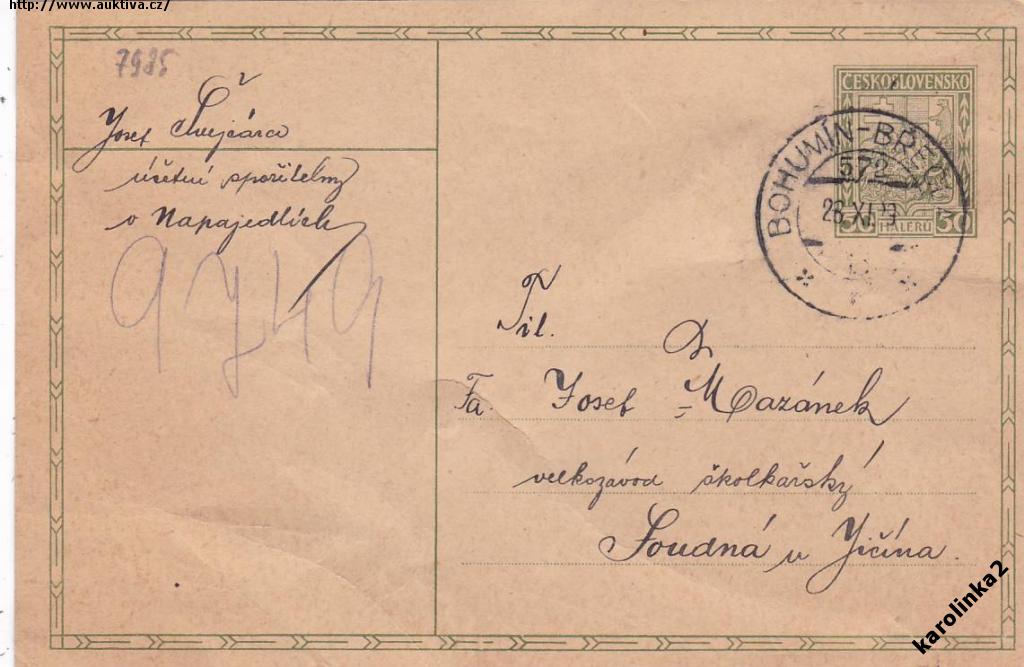 http://www.auktiva.cz/
7985
Josef Švejčara
účetní spořitelny
v Napajedlích
9749
ČESKOSLOVENSKO
50 HALÉŘŮ 50
BOHUMÍN-
572
Til.
Fa. Josef Mazánek
velkozávod školkařský
Soudná u Jičína.
karolinka2